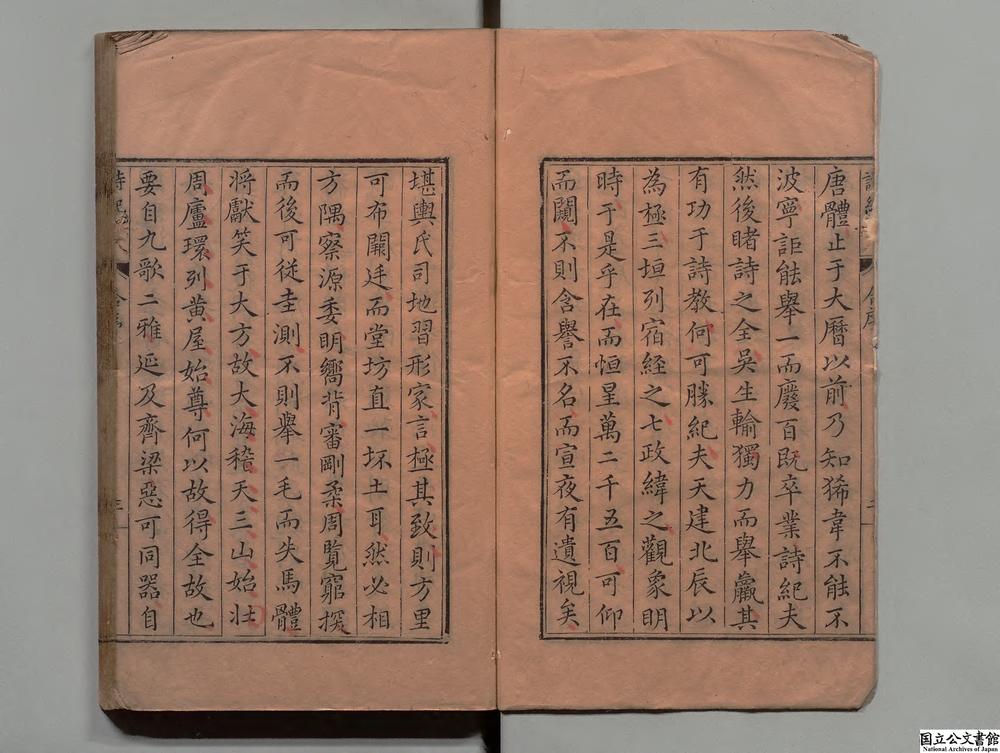 唐體止于大曆以前乃知狶韋不能不
波寧詎能舉一而廢百既卒業詩紀夫
然後睹詩之全吳生輸獨力而舉羸其
有功于詩教何可勝紀夫天建北辰以
為極三垣列宿經之七政緯之觀象明
時于是乎在而恒星萬二千五百可仰
而闚不則含譽不名而宣夜有遺視矣
堪輿氏司地習形家言極其致則方里
可布闗廷而堂坊直一坏土耳然必相
方隅察源委明嚮背審剛柔周覽窮探
而後可從圭測不則舉一毛而失馬體
將獻笑于大方故大海稽天三山始壯
周廬環列黄屋始尊何以故得全故也
要自九歌二雅延及齊梁惡可同器自
国立公文書館
National Archives of Japan